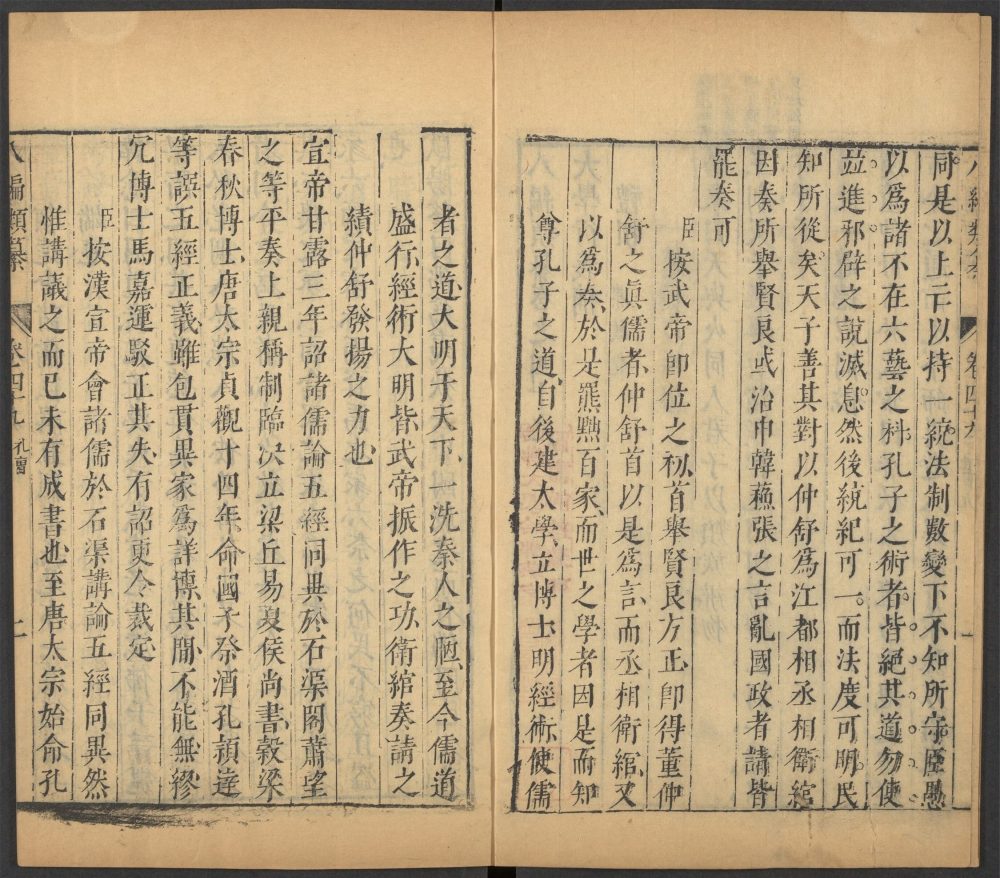 八編類纂 卷四十九
同是以上亡以持一統法制數變下不知所守臣愚
以爲諸不在六藝之科孔子之術者皆絕其道勿使
並進邪辟之說滅息然後統紀可一而法度可明民
知所從矣天子善其對以仲舒爲江都相丞相衛綰
因奏所舉賢良或治申韓蘇張之言亂國政者請皆
罷奏可
臣按武帝卽位之初首舉賢良方正卽得董仲
舒之眞儒者仲舒首以是爲言而丞相衛綰又
以爲奏於是罷黜百家而世之學者因是而知
尊孔子之道自後建太學立博士明經術使儒
者之道大明于天下一洗秦人之陋至今儒道
盛行經術大明皆武帝振作之功衛綰奏請之
績仲舒發揚之力也
宣帝甘露三年詔諸儒論五經同異於石渠閣蕭望
之等平奏上親稱制臨决立梁丘易夏侯尚書穀梁
春秋博士唐太宗貞觀十四年命國子祭酒孔穎達
等譔五經正義雖包貫異家爲詳博其間不能無繆
冗博士馬嘉運駁正其失有詔更令裁定
臣按漢宣帝會諸儒於石渠講論五經同異然
惟講議之而已未有成書也至唐太宗始命孔
八編類纂 卷之四九 孔曾 二